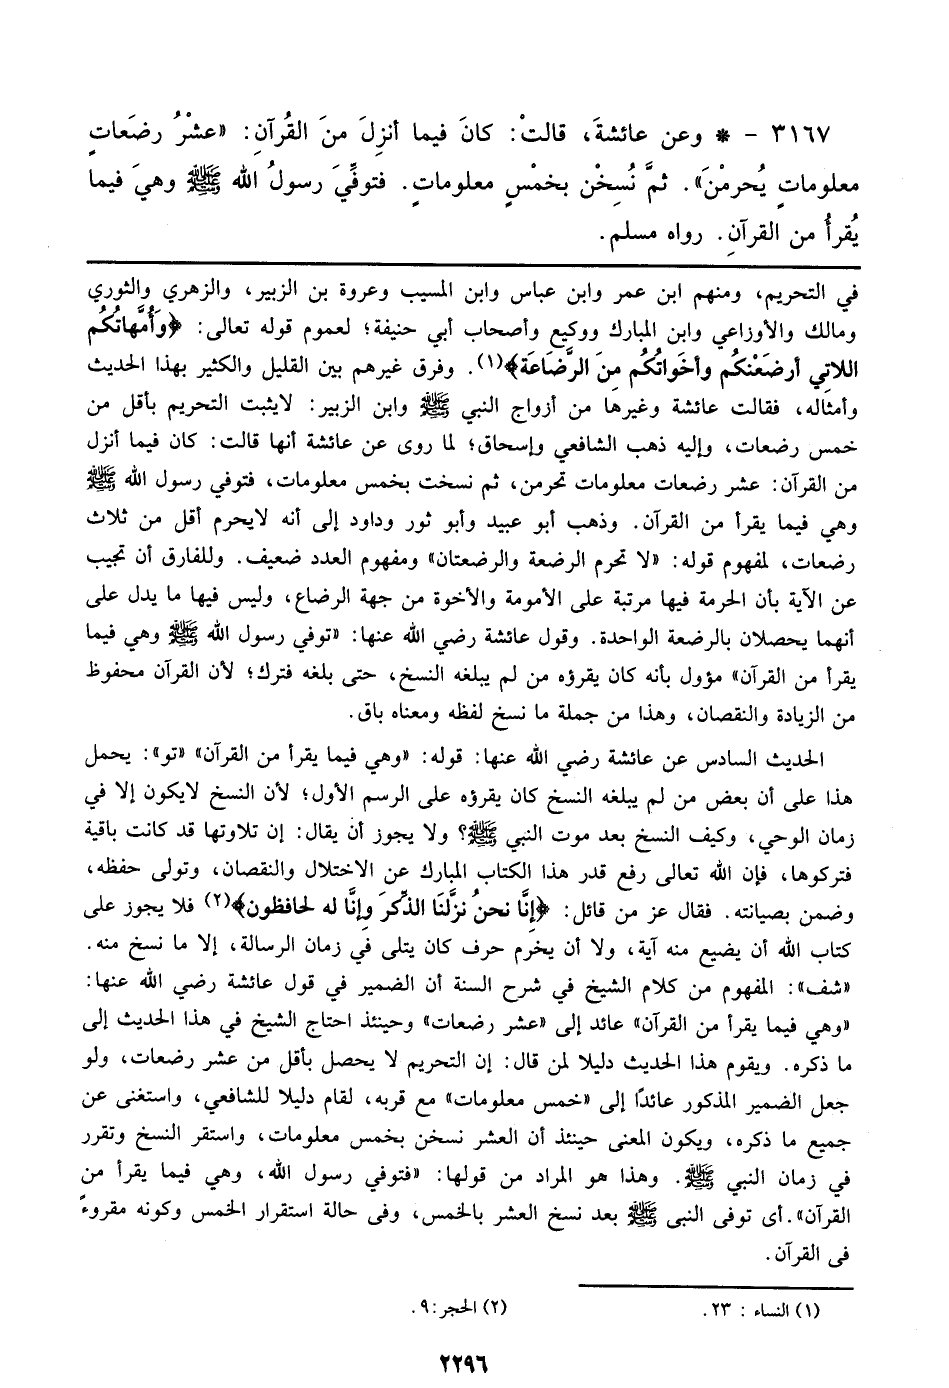 ٣١٦٧ – * وعن عائشةَ، قالتْ: كانَ فيما أنزِلَ منَ القُرآنِ: «عشْرُ رضَعاتٍ
معلوماتٍ يُحرمْنَ». ثمَّ نُسِخْن بخمْسٍ معلوماتٍ. فتوفِّيَ رسولُ الله ﷺ وهيَ فيما
يُقرأُ من القرآنِ. رواه مسلم.
في التحريم، ومنهم ابن عمر وابن عباس وابن المسيب وعروة بن الزبير، والزهري والثوري
ومالك والأوزاعي وابن المبارك ووكيع وأصحاب أبي حنيفة؛ لعموم قوله تعالى: ﴿وَأُمَّهاتُكُم
اللاتِي أرضَعْنكُم وأخَواتُكُم مِنَ الرَّضَاعَة﴾(١). وفرق غيرهم بين القليل والكثير بهذا الحديث
وأمثاله، فقالت عائشة وغيرها من أزواج النبي ﷺ وابن الزبير: لايثبت التحريم بأقل من
خمس رضعات، وإليه ذهب الشافعي وإسحاق؛ لما روى عن عائشة أنها قالت: كان فيما أنزل
من القرآن: عشر رضعات معلومات تحرمن، ثم نسخت بخمس معلومات، فتوفي رسول الله ﷺ
وهي فيما يقرأ من القرآن. وذهب أبو عبيد وأبو ثور وداود إلى أنه لايحرم أقل من ثلاث
رضعات، لمفهوم قوله: «لا تحرم الرضعة والرضعتان» ومفهوم العدد ضعيف. وللفارق أن تجيب
عن الآية بأن الحرمة فيها مرتبة على الأمومة والأخوة من جهة الرضاع، وليس فيها ما يدل على
أنهما يحصلان بالرضعة الواحدة. وقول عائشة رضي الله عنها: «توفي رسول الله ﷺ وهي فيما
يقرأ من القرآن» مؤول بأنه كان يقرؤه من لم يبلغه النسخ، حتى بلغه فترك؛ لأن القرآن محفوظ
من الزيادة والنقصان، وهذا من جملة ما نسخ لفظه ومعناه باق.
الحديث السادس عن عائشة رضي الله عنها: قوله: «وهي فيما يقرأ من القرآن» «تو»: يحمل
هذا على أن بعض من لم يبلغه النسخ كان يقرؤه على الرسم الأول؛ لأن النسخ لايكون إلا في
زمان الوحي، وكيف النسخ بعد موت النبي ﷺ؟ ولا يجوز أن يقال: إن تلاوتها قد كانت باقية
فتركوها، فإن الله تعالى رفع قدر هذا الكتاب المبارك عن الاختلال والنقصان، وتولى حفظه،
وضمن بصيانته. فقال عز من قائل: ﴿إنَّا نحنُ نزَّلنَا الذِّكرَ وإنَّا له لحافظون﴾(٢) فلا يجوز على
كتاب الله أن يضيع منه آية، ولا أن يخرم حرف كان يتلى في زمان الرسالة، إلا ما نسخ منه.
«شف»: المفهوم من كلام الشيخ في شرح السنة أن الضمير في قول عائشة رضي الله عنها:
«وهي فيما يقرأ من القرآن» عائد إلى «عشر رضعات» وحينئذ احتاج الشيخ في هذا الحديث إلى
ما ذكره. ويقوم هذا الحديث دليلا لمن قال: إن التحريم لا يحصل بأقل من عشر رضعات، ولو
جعل الضمير المذكور عائدًا إلى «خمس معلومات» مع قربه، لقام دليلا للشافعي، واستغنى عن
جميع ما ذكره، ويكون المعنى حينئذ أن العشر نسخن بخمس معلومات، واستقر النسخ وتقرر
في زمان النبي ﷺ. وهذا هو المراد من قولها: «فتوفي رسول الله، وهي فيما يقرأ من
القرآن».أى توفى النبى ﷺ بعد نسخ العشر بالخمس، وفى حالة استقرار الخمس وكونه مقروءً
فى القرآن.
(١) النساء : ٢٣. (٢) الحجر: ٩.
٢٢٩٦